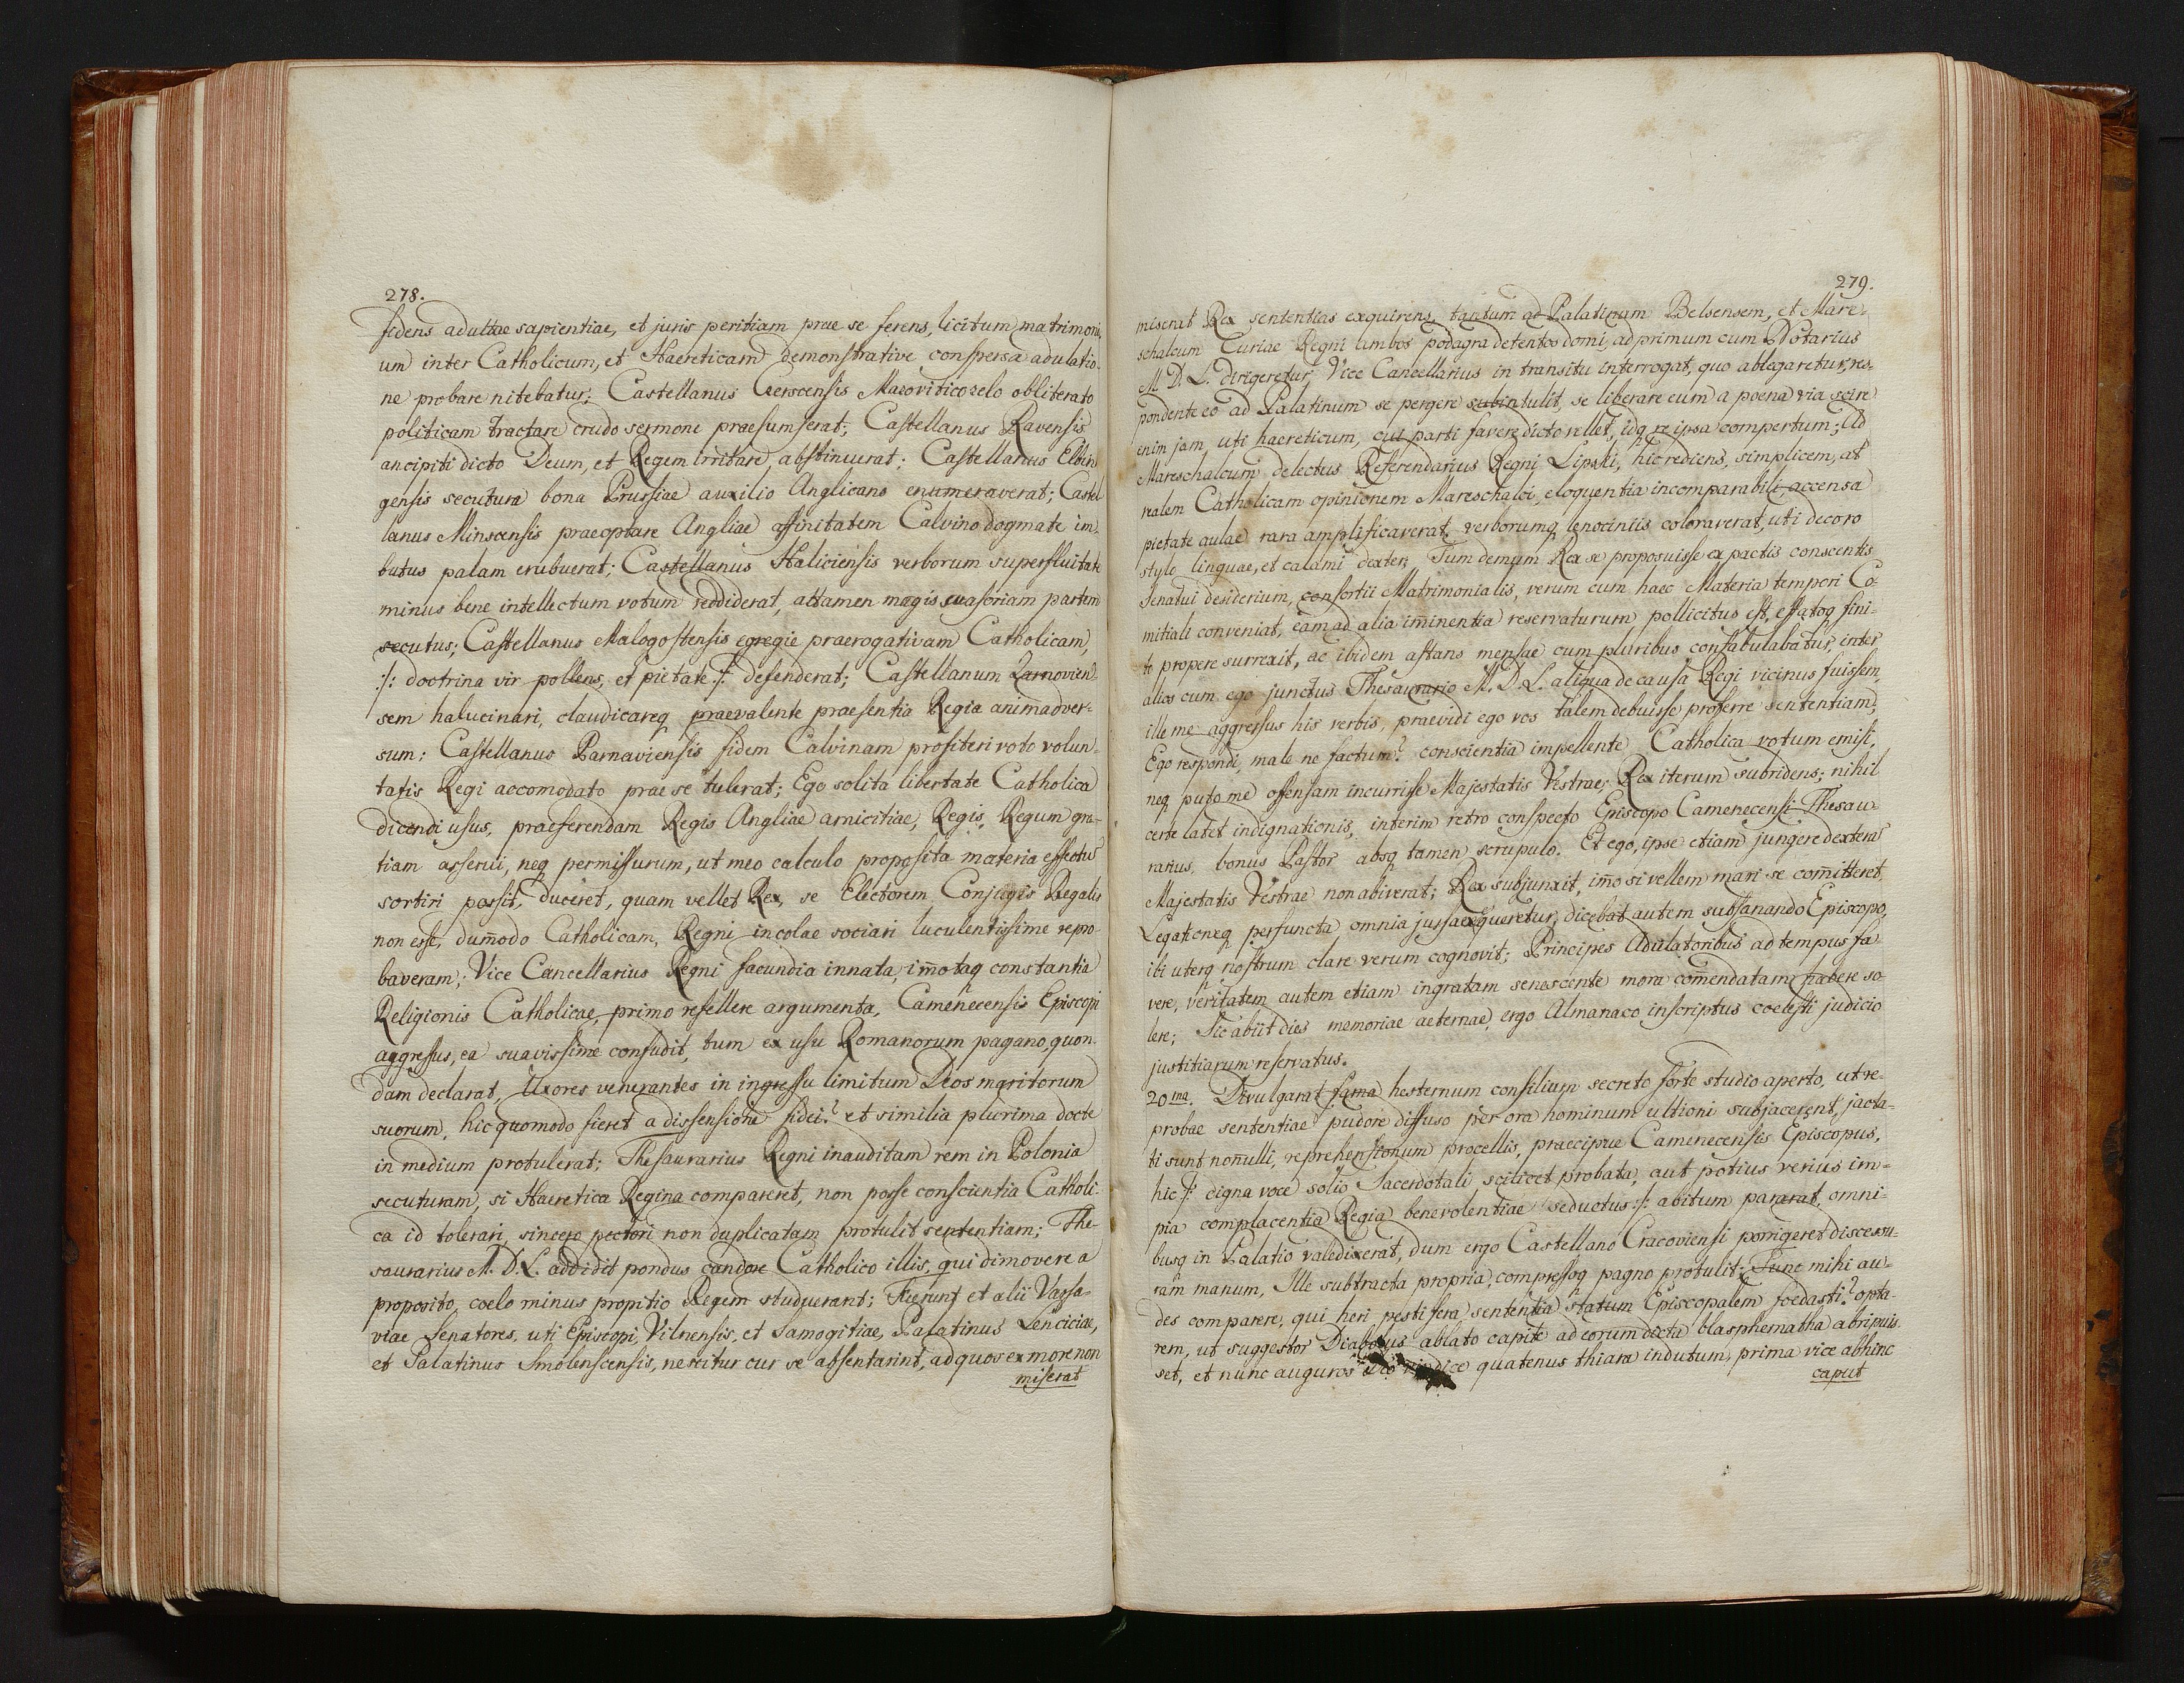 278.
fidens adultae sapientiae, et juris peritiam prae se ferens, licitum matrimoni-
um inter Catholicum, et Haereticam demonstrative conspersa adulatio-
ne probare nitebatur; Castellanus Czerscensis Mazovitico zelo obliterato
politicam tractare crudo sermone praesumserat; Castellanus Ravensis
ancipiti dicto Deum, et Regem irritare, abstinuerat; Castellanus Elbin-
gensis secutura bona Prussiae auxilio Anglicano enumeraverat; Castel-
lanus Minscensis praeoptare Angliae affinitatem Calvino dogmate im-
butus palam erubuerat; Castellanus Haliciensis verborum superfluitate
minus bene intellectum votum reddiderat, attamen magis suasoriam partem
secutus; Castellanus Malogostensis egregie praerogativam Catholicam,
:/: doctrina vir pollens, et pietate :/: defenderat; Castellanum Zarnovien-
sem halucinari, claudicareq praevalente praesentia Regia animadver-
sum; Castellanus Parnaviensis fidem Calvinam profiteri voto volun-
tatis Regi accomodato prae se tulerat; Ego solita libertate Catholica
dicendi usus, praeferendam Regis Angliae amicitiae, Regis Regum gra-
tiam asserui, neq permissurum, ut meo calculo proposita materia effectus
sortiri possit, duceret, quam vellet Rex, se Electorem Conjugis Regalis
non esse, dum̄odo Catholicam, Regni incolae sociari luculentissime repro-
baveram; Vice Cancellarius Regni facundia innata, im̄otaq constantia
Religionis Catholicae, primo refellere argumenta, Camenecensis Episcopi
aggressus, ea suavissime confudit, tum ex usu Romanorum pagano, quon-
dam declarat, Uxores venerantes in ingressu limitum Deos maritorum
suorum, hic quomodo fieret a dissensione fidei? et similia plurima docte
in medium protulerat; Thesaurarius Regni inauditam rem in Polonia
secuturam, si Haeretica Regina compareret, non posse conscientia Catholi-
ca id tolerari, sincero pectori non duplicatam protulit sententiam; The-
saurarius M. D. L. addidit pondus candore Catholico illis, qui dimovere a
proposito, coelo minus propitio Regem studuerant; Fuerunt et alii Varsa-
viae Senatores, uti Episcopi, Vilnensis, et Samogitiae, Palatinus Lenciciae,
et Palatinus Smolenscensis, nescitur cur se absentarint, ad quos ex more non
miserat
279.
miserat Rex sententias exquirens, tantum ad Palatinum Belsensem, et Mare-
schalcum Curiae Regni ambos podagra detentos domi, ad primum cum Notarius
M. D. L. dirigeretur, Vice Cancellarius in transitu interrogat, quo ablegaretur, res-
pondente eo ad Palatinum se pergere subintulit, se liberare eum a poena via scire
enim jam, uti haereticum, cui parti favere dicto vellet, idq re ipsa compertum; Ad
Mareschalcum delectus Referendarius Regni Lipski, hic rediens, simplicem, at
realem Catholicam opinionem Mareschalci, eloquentia incomparabili, accensa
pietate aulae rara amplificaverat, verborumq lenociniis coloraverat, uti decoro
stylo linguae, et calami dexter; Tum demum Rex se proposuisse ex pactis conscentis
Senatui desiderium, consortii Matrimonialis, verum cum haec Materia tempori Co-
mitiali conveniat, eam ad alia im̄inentia reservaturum pollicitus est, effatoq fini-
to propere surrexit, ac ibidem astans mensae cum pluribus confabulabatur, inter
alios cum ego junctus Thesaurario M. D. L. aliqua de causa Regi vicinus fuissem,
ille me aggressus his verbis, praevidi ego vos talem debuisse proferre sententiam;
Ego respondi, male ne factum? conscientia impellente Catholica votum emisi,
neq puto me offensam incurrisse Majestatis Vestrae; Rex iterum subridens; nihil
certe latet indignationis, interim retro conspecto Episcopo Camenecensi Thesau-
rarius, bonus Pastor absq tamen scrupulo. Et ego, ipse etiam jungere dexteras
Majestatis Vestrae non abiverat; Rex subjunxit, im̄o si vellem mari se com̄itteret,
Legationeq perfuncta omnia jussa exqueretur, dicebat autem subsanando Episcopo,
ibi uterq nostrum clare verum cognovit; Principes Adulatoribus ad tempus fa-
vere, veritatem autem etiam ingratam senescente mora com̄endatam habere so-
lere; Sic abiit dies memoriae aeternae, ergo Almanaco inscriptus coelesti judicio
justitiarum reservatus.
20ma. Divulgarat fama hesternum consilium secreto forte studio aperto, ut re-
probae sententiae pudore diffuso per ora hominum ultioni subjacerent, jacta-
ti sunt non̄ulli, reprehensionum procellis, praecipue Camenecensis Episcopus,
hic :/: digna voce solio Sacerdotali scilicet probata, aut potius verius im-
pia complacentia Regia benevolentiae seductus :/: abitum pararat, omni-
busq in Palatio valedixerat, dum ergo Castellano Cracoviensi porrigeret discessu-
ram manum, Ille subtracta propria, compressoq pugno protulit; Tunc mihi au-
des comparere, qui heri pestifera sententia statum Episcopalem foedasti? opta-
rem, ut suggestor Diabolus ablato capite ad eorum dicta blasphemabra abripuis-
set, et nunc auguros quatenus thiara indutum, prima vice abhinc
caput